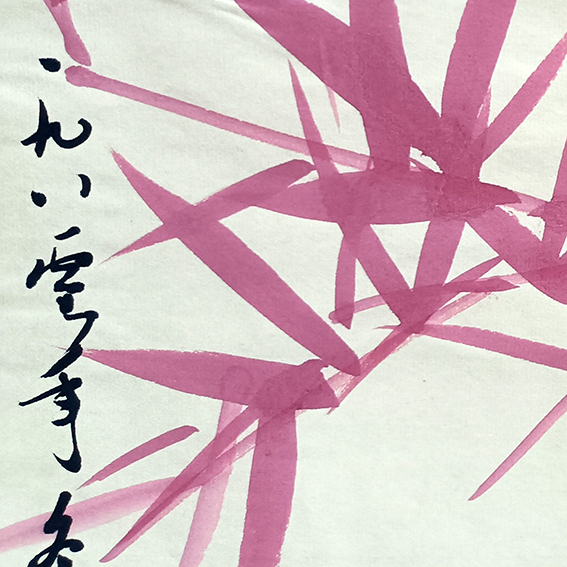 一九八零年冬